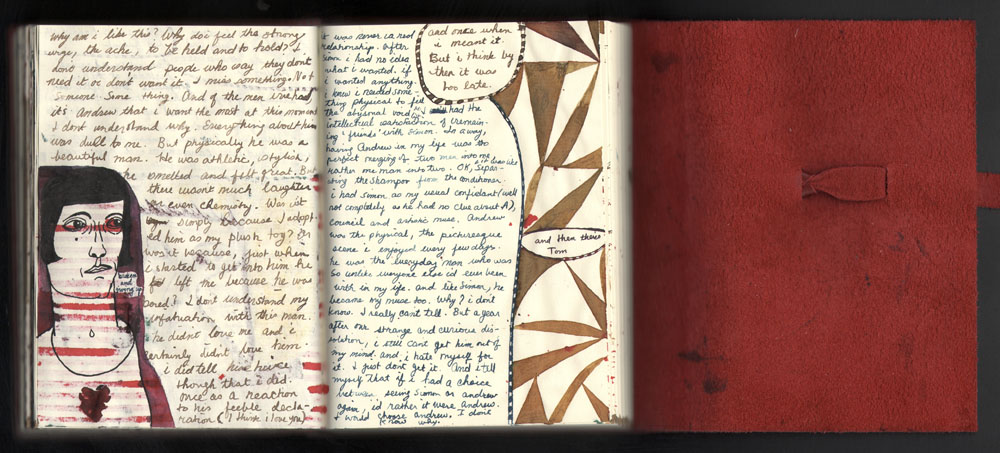 why am i like this? Why do i feel the strong
urge, the ache, to be held and to hold? I
dont understand people who say they dont
need it or don't want it. I miss something. Not
someone. Some thing. And of the men i've had
its Andrew that i want the most at this moment
I dont understand why. Everything about him
was dull to me. But physically he was a
beautiful man. He was athletic, stylish,
he smelled and felt great. But
there wasn't much laughter
or even chemistry. Was it
simply because I adopt-
ed him as my plush toy? Or
was it because, just when
i started to get into him he
left me because he was
bored? I don't understand my
infatuation with this man.
he didn't love me and i
certainly didn't love him.
i did tell him twice
though that i did.
once as a reaction
to his feeble decla-
ration (I think i love you)
broken
and
giving up
and once when
i meant it.
But i think by
then it was
too late.
it was never a real
relationship. After
him i had no idea
what i wanted. if
i wanted anything.
i knew i needed some-
thing physical to fill
the abysmal void. I had the
intellectual satisfaction of remain-
ing 'friends' with Simon. In a way,
having Andrew in my life was too
perfect merging of two men into one
it was like
rather one man into two. OK, separ-
ating the shampoo from the conditioner.
i had Simon as my usual confidant (well
not completely as he had no clue about A),
council and artistic muse. Andrew
was the physical, the picturesque
scene i enjoyed every few days.
he was the everyday man who was
so unlike everyone else i'd ever been
with in my life. and like Simon, he
became my muse too. Why? i don't
know. I really can't tell. But a year
after our strange and curious dis-
solution, i still cant get him out of
my mind. and i hate myself for
it. i just don't get it. And i tell
myself that if i had a choice
between seeing Simon or andrew
again, i'd rather it were Andrew.
I would choose Andrew. I don't
know why.
and then theres
Tom